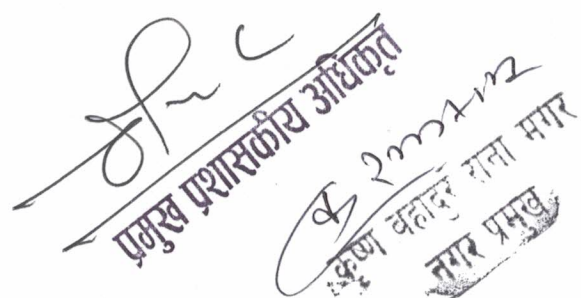 प्रमुख प्रशासकीय अधिकृत
कृष्ण बहादुर राना मगर
नगर प्रमुख